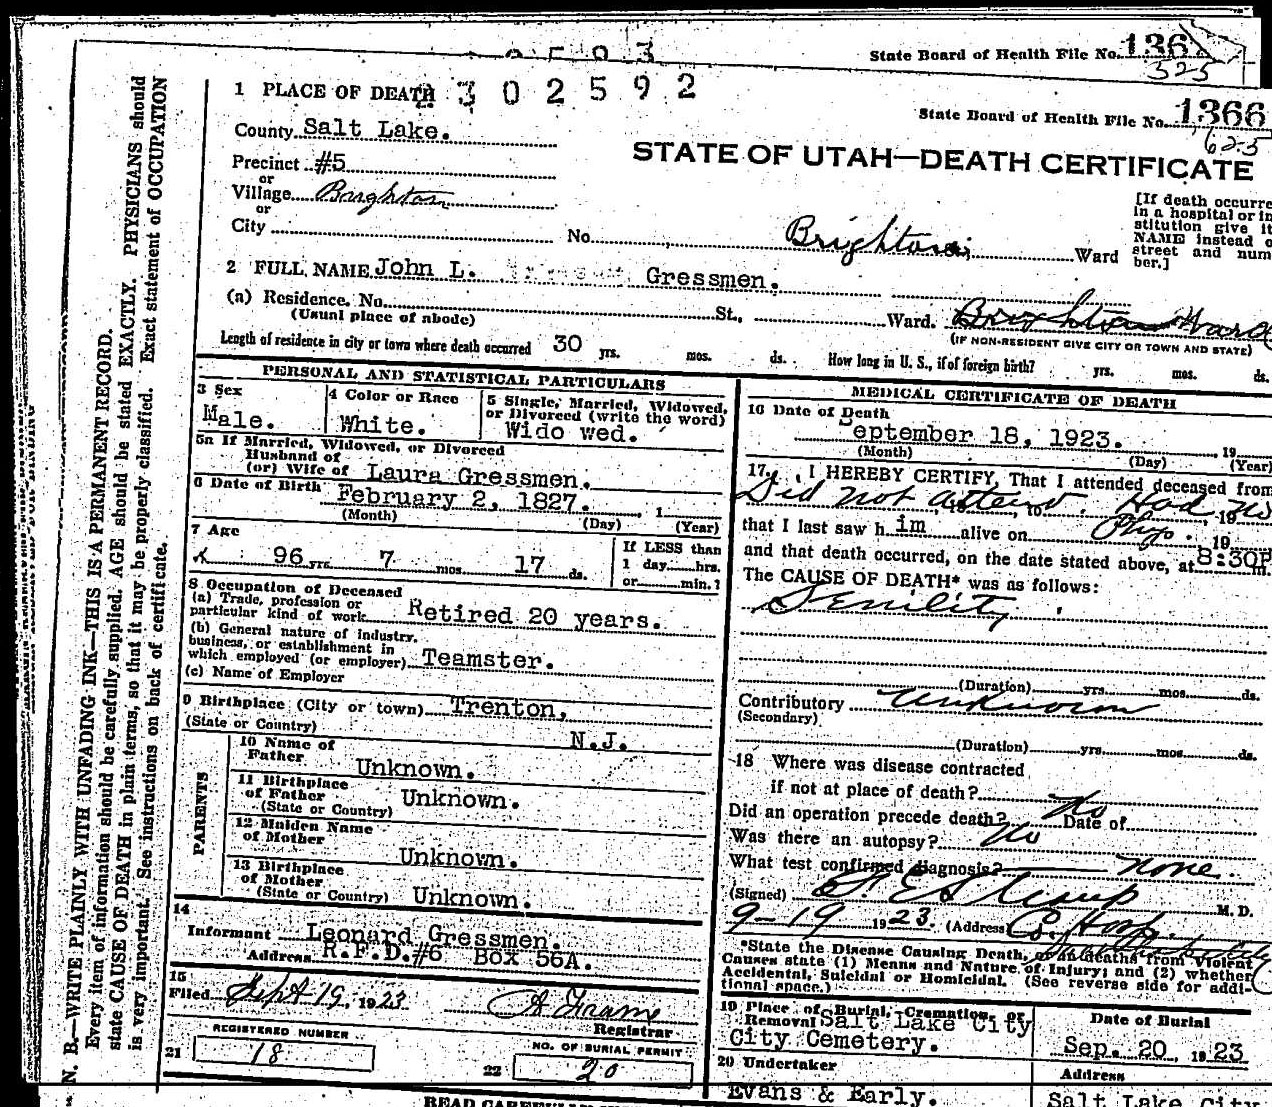 State Board of Health File No. 1367
325
1 PLACE OF DEATH
302592
State Board of Health File No. 1366
625
County Salt Lake.
STATE OF UTAH—DEATH CERTIFICATE
Precinct #5
or
Village Brighton
or
City No. Brighton Ward
[If death occurre
in a hospital or in
stitution give it
NAME instead o
street and num
ber.]
2 FULL NAME John L. Gressmen.
(a) Residence. No. St., Ward. Brighton Ward
(Usual place of abode)
(IF NON-RESIDENT GIVE CITY OR TOWN AND STATE)
Length of residence in city or town where death occurred 30 yrs. mos. ds. How long in U. S., if of foreign birth? yrs. mos. ds.
PERSONAL AND STATISTICAL PARTICULARS
3 Sex
Male.
4 Color or Race
White.
5 Single, Married, Widowed,
or Divorced (write the word)
Wido wed.
5a If Married, Widowed, or Divorced
Husband of
(or) Wife of Laura Gressmen.
6 Date of Birth February 2, 1827. 1
(Month) (Day) (Year)
7 Age
96 yrs. 7 mos. 17 ds.
If LESS than
1 day hrs.
or min.?
8 Occupation of Deceased
(a) Trade, profession or
particular kind of work Retired 20 years.
(b) General nature of industry,
business, or establishment in
which employed (or employer) Teamster.
(c) Name of Employer
9 Birthplace (City or town) Trenton,
(State or Country) N.J.
PARENTS
10 Name of
Father Unknown.
11 Birthplace
of Father Unknown.
(State or Country)
12 Maiden Name
of Mother
Unknown.
13 Birthplace
of Mother
(State or Country) Unknown.
14
Informant Leonard Gressmen.
Address R.F.D.#6 Box 56A.
15
Filed Sept 19, 1923 A Frame
Registrar
REGISTERED NUMBER
21 18
NO. OF BURIAL PERMIT
22 20
MEDICAL CERTIFICATE OF DEATH
16 Date of Death
September 18, 1923. 19
(Month) (Day) (Year)
17 I HEREBY CERTIFY, That I attended deceased from
Did not attend. Had no
, 19 , to , 19
that I last saw h im alive on Phys. 19
and that death occurred, on the date stated above, at 8:30P m.
The CAUSE OF DEATH* was as follows:
Senility
(Duration) yrs. mos. ds.
Contributory Unknown
(Secondary)
(Duration) yrs. mos. ds.
18 Where was disease contracted
if not at place of death?
Did an operation precede death? No Date of
Was there an autopsy? No
What test confirmed diagnosis? none.
(Signed) M. D.
9-19 1923. (Address
*State the Disease Causing Death, or in deaths from Violent
Causes state (1) Means and Nature of Injury; and (2) whether
Accidental, Suicidal or Homicidal. (See reverse side for addi-
tional space.)
19 Place of Burial, Cremation, or
Removal Salt Lake City
City Cemetery.
Date of Burial
Sep. 20, 1923
20 Undertaker
Evans & Early.
Address
Salt Lake City
N. B.—WRITE PLAINLY WITH UNFADING INK—THIS IS A PERMANENT RECORD.
Every item of information should be carefully supplied. AGE should be stated EXACTLY. PHYSICIANS should
state CAUSE OF DEATH in plain terms, so that it may be properly classified. Exact statement of OCCUPATION
is very important. See instructions on back of certificate.